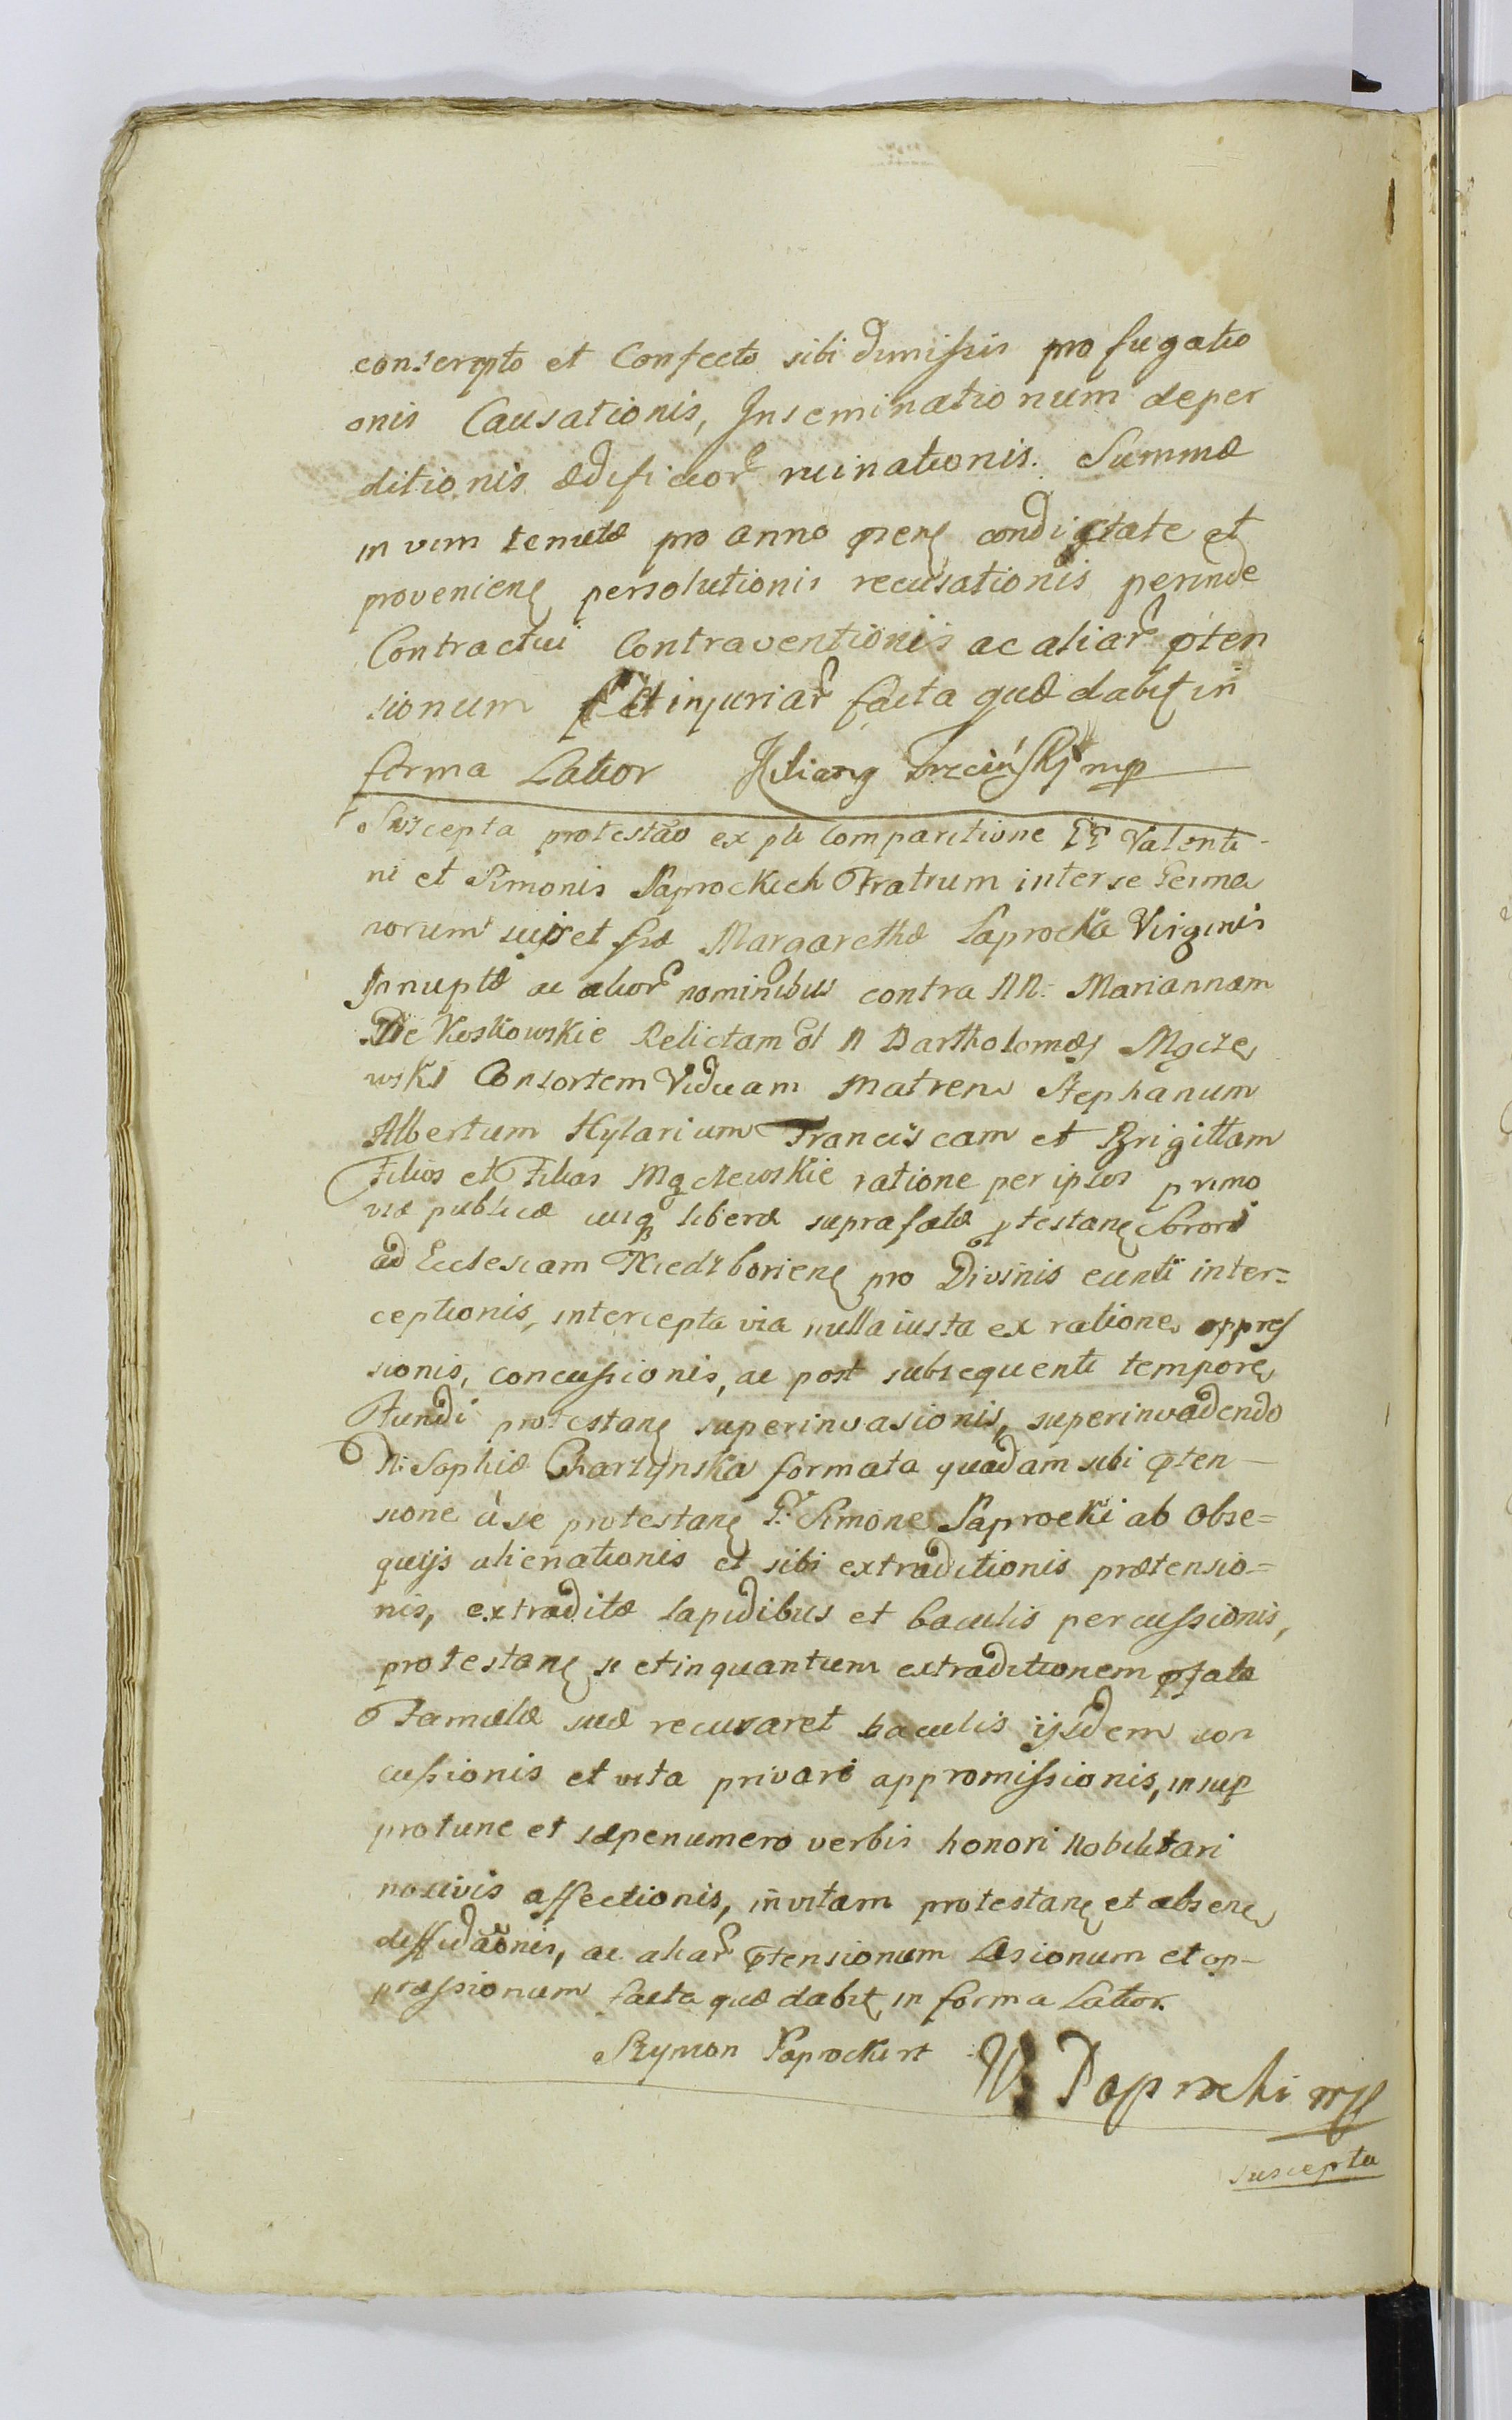 conscripto et Confecto sibi dimissis pro fugatio
onis Causationis, Inseminationum deper
ditionis ædificior ruinationis. Summæ
in vim tenutæ pro anno præn condictatæ et
provenien persolutionis recusationis perinde
Contractui Contraventionis ac aliar pten
sionum et injuriar facta quæ dabit in
forma Latior Trzciński mp
Suscepta protestao ex pli Comparitione Valenti-
ni et Simonis Paprockich Fratrum inter se Germa
norum suis et Margarethæ Paprocka Virginis
Innuptæ ac alior nominibus contra NN. Mariannam
De Koskowskie Relictam ol N Bartholomæj Mącze
wski Consortem Viduam Matrem Stephanum
Albertum Hylarium Franciscam et Brigittam
Filios et Filias Mączewskie ratione per ipsos primo
viæ publicæ cuiq liberæ suprafatæ ptestan Sorori
ad Ecclesiam Niedzborien pro Divinis eunti inter=
ceptionis, intercepta via nulla iusta ex ratione oppres
sionis, concussionis, ac post subsequenti tempore
Fundi protestan superinvasionis, superinvadendo
N: Sophiæ Charzynska formata quadam sibi pten-
sione à se protestan G. Simone Paprocki ab Obse=
quijs alienationis et sibi extraditionis prætensio=
nis, extraditæ lapidibus et baculis percussionis,
protestan si et inquantum extraditionem pfatæ
Famulæ suæ recusaret baculis ijsdem con
cussionis et vita privari appromissionis, insup
protunc et sæpenumero verbis honori Nobilitari
nocivis affectionis, in vitam protestan et absen
diffidaonis, ac aliar ptensionum Læsionum et op-
præssionum facta quæ dabit in forma Latior.
Szymon Paprocki
W Paprocki mp
suscepta